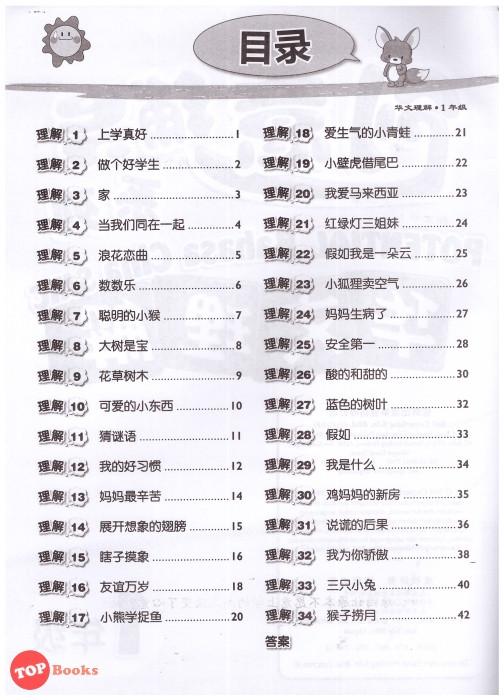 目录
华文理解•1年级
理解 1 上学真好 1
理解 2 做个好学生 2
理解 3 家 3
理解 4 当我们同在一起 4
理解 5 浪花恋曲 5
理解 6 数数乐 6
理解 7 聪明的小猴 7
理解 8 大树是宝 8
理解 9 花草树木 9
理解 10 可爱的小东西 10
理解 11 猜谜语 11
理解 12 我的好习惯 12
理解 13 妈妈最辛苦 14
理解 14 展开想象的翅膀 15
理解 15 瞎子摸象 16
理解 16 友谊万岁 18
理解 17 小熊学捉鱼 20
理解 18 爱生气的小青蛙 21
理解 19 小壁虎借尾巴 22
理解 20 我爱马来西亚 23
理解 21 红绿灯三姐妹 24
理解 22 假如我是一朵云 25
理解 23 小狐狸卖空气 26
理解 24 妈妈生病了 27
理解 25 安全第一 28
理解 26 酸的和甜的 30
理解 27 蓝色的树叶 32
理解 28 假如 33
理解 29 我是什么 34
理解 30 鸡妈妈的新房 35
理解 31 说谎的后果 36
理解 32 我为你骄傲 38
理解 33 三只小兔 40
理解 34 猴子捞月 42
答案
TOP Books